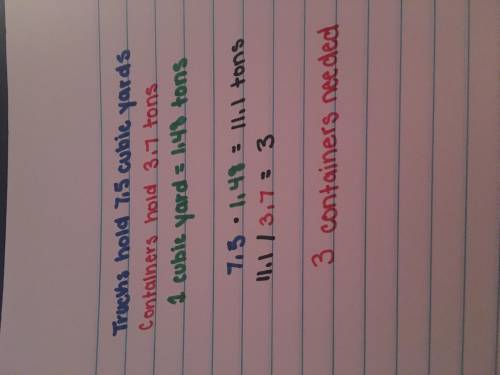 Trucks hold 7.5 cubic yards
Containers hold 3.7 tons
1 cubic yard = 1.48 tons
7.5 · 1.48 = 11.1 tons
11.1 / 3.7 = 3
3 containers needed